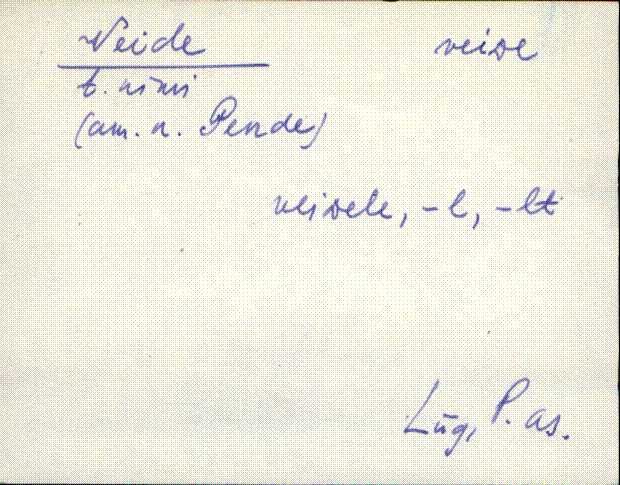 Veide veiᴅe
t. nimi
(am. n. Pende)
veiᴅele, -l, -lt
Lüg, P. as.